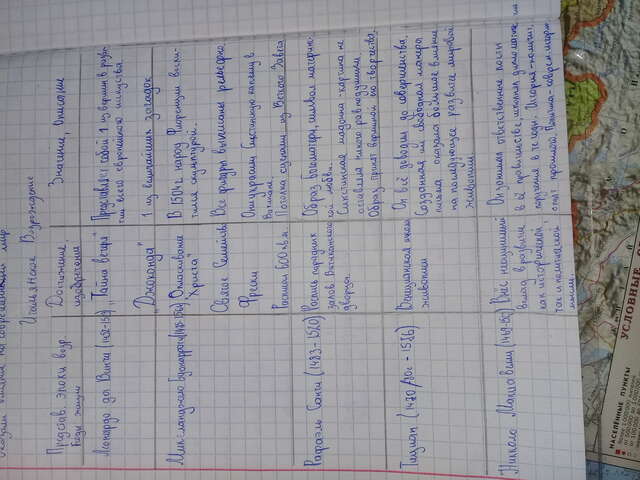 Итальянское Возрождение
Представ. эпохи возр
Годы жизни
Достижение
изобретения
Значение, Описание
Леонардо да Винчи (1452-1519)
"Тайна вечеря"
Представляет собой 1 из вершин в разви-
тии всей европейского искусства.
"Джоконда"
1 из величайших загадок
Микеланджело Буонарроти (1475-1564)
Оплакивание
Христа"
В 1504г. народ Флоренции
скульптурой.
Святое Семейство
Все фигуры вылеплены рельефно.
Фрески
Отукрасил Сикстинскую капеллу в
Ватикане
Росписал 600 кв.м.
Потолка сценами из Ветхого Завета
Рафаэль Санти (1483-1520)
Роспись парадных
залов Ватиканского
дворца.
Образ богоматери, символ материн-
ской любви.
Сикстинская мадонна - картина не
оставляла никого равнодушным.
Образ принят вершиной его творчества.
Тициан (1470/80е - 1576)
Венецианская школа
живописи
Он всё доводил до совершенства.
Созданная им свободная манера
письма оказала большое влияние
на последующее развитие мировой
живописи.
Никколо Макиавелли (1469-
Внёс неоценимый
вклад в развитие
как исторической,
так и политической
мысли.
Он занимал ответственные посты
в её правительстве, исполнял дипломатические
поручения
История-
опыт прошлой.
УСЛОВНЫЕ
НАСЕЛЁННЫЕ ПУНКТЫ